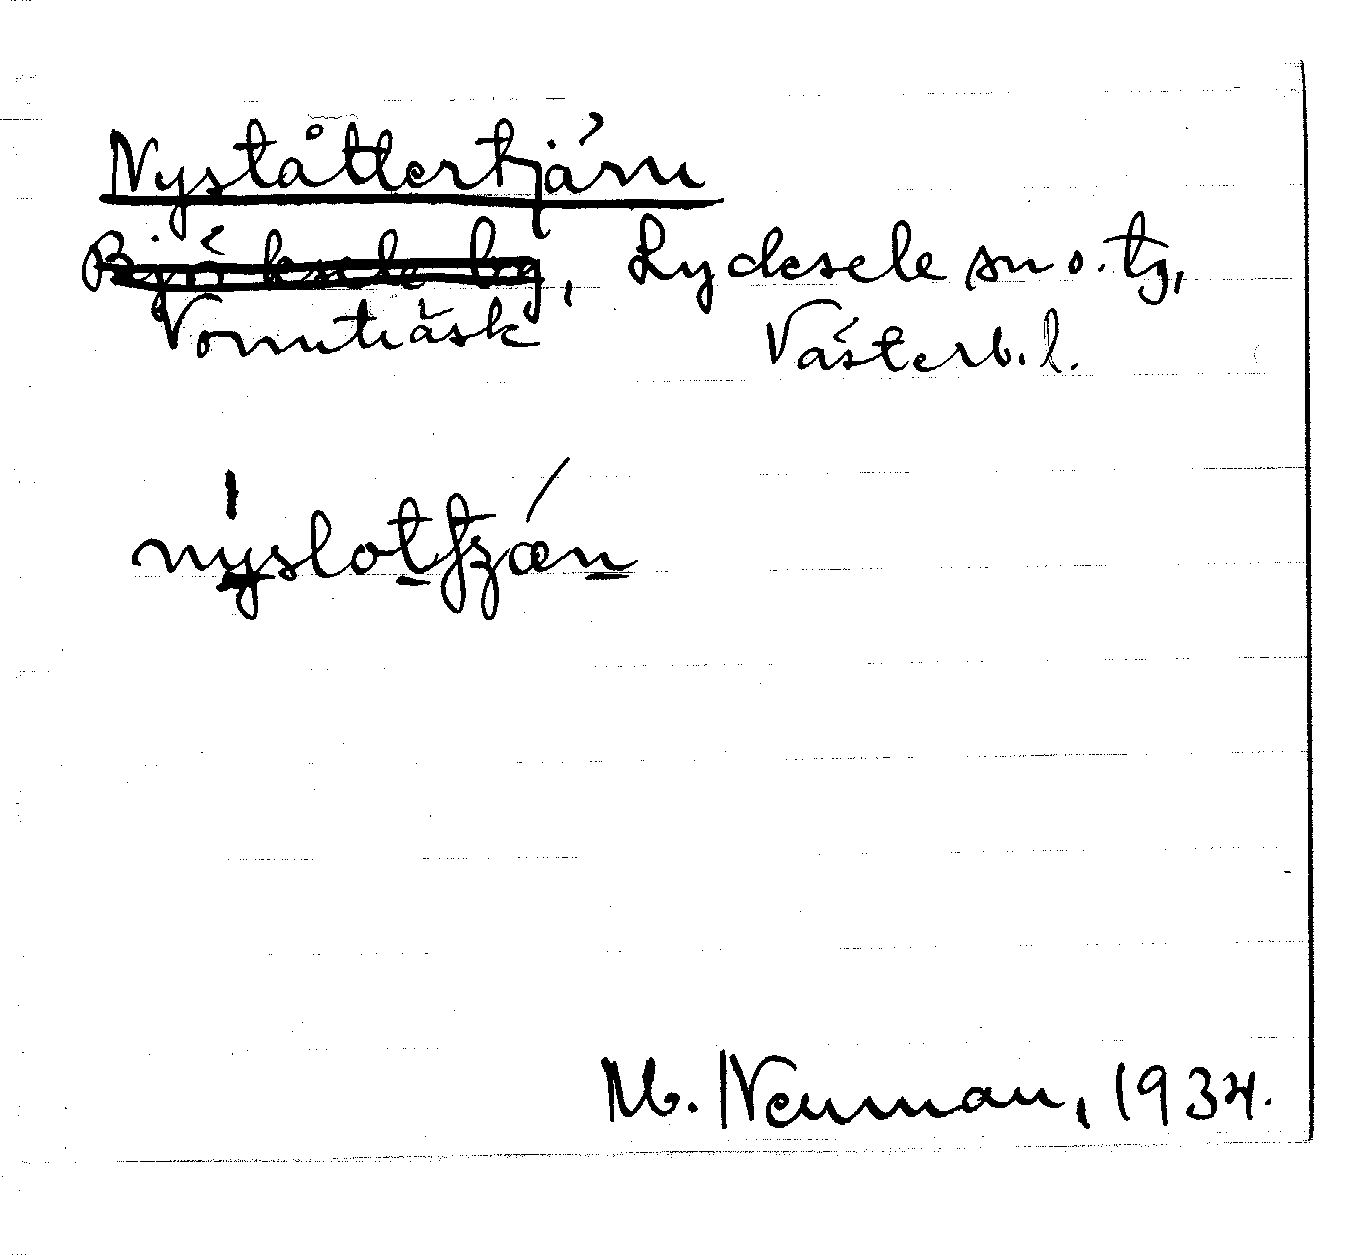 Nyståttertjärn
Björksele by, Lycksele sn o. tg,
Vormträsk Västerb. l.
nyslotʃʒæn
M. Neuman, 1934.